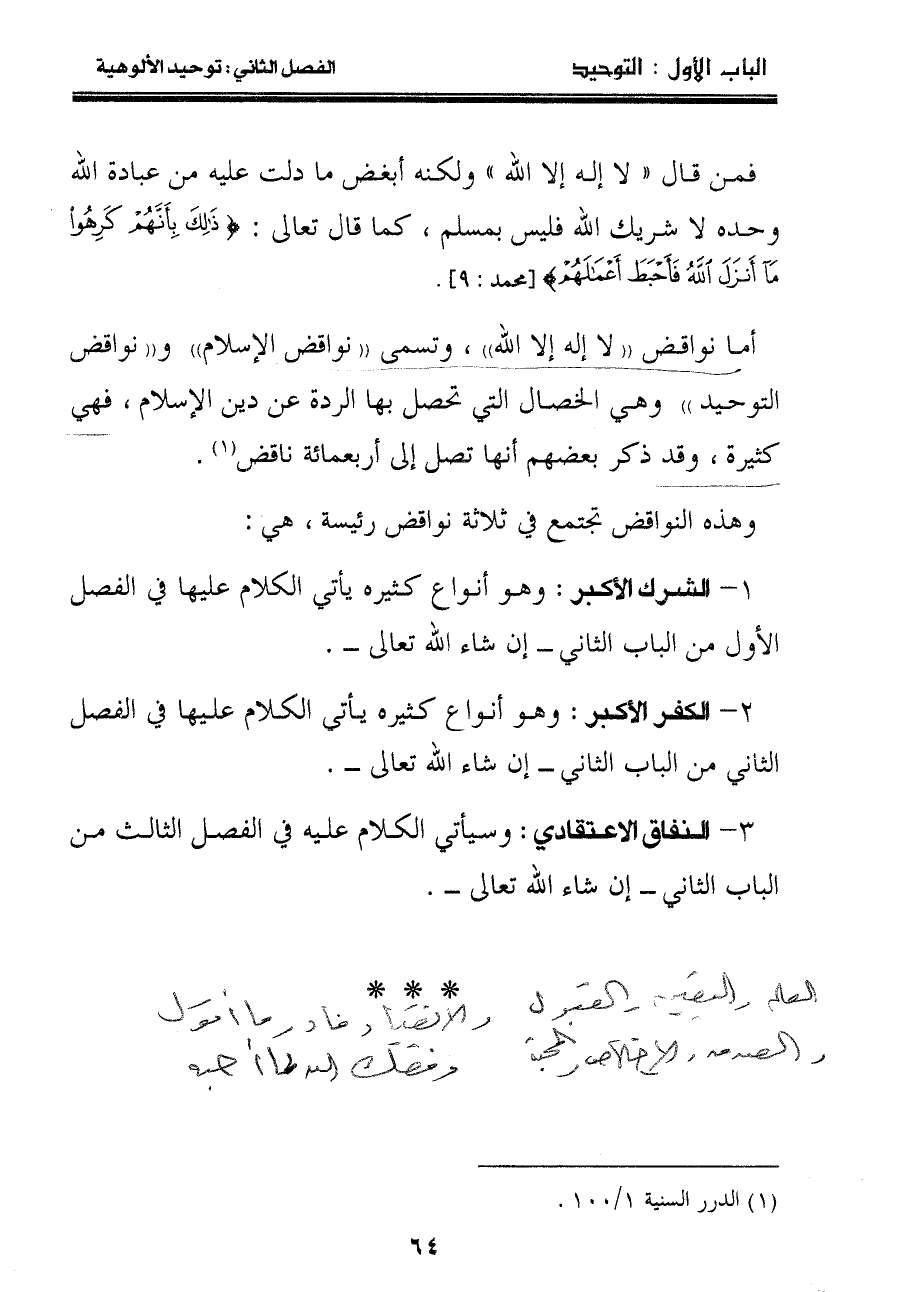 الباب الأول : التوحيد الفصل الثاني: توحيد الألوهية
فمن قال « لا إله إلا الله » ولكنه أبغض ما دلت عليه من عبادة الله
وحده لا شريك الله فليس بمسلم ، كما قال تعالى : ﴿ ذَٰلِكَ بِأَنَّهُمْ كَرِهُوا۟
مَآ أَنزَلَ ٱللَّهُ فَأَحْبَطَ أَعْمَٰلَهُمْ﴾ [محمد : ٩] .
أما نواقض (( لا إله إلا الله)) ، وتسمى (( نواقض الإسلام)) و(( نواقض
التوحيد )) وهي الخصال التي تحصل بها الردة عن دين الإسلام ، فهي
كثيرة ، وقد ذكر بعضهم أنها تصل إلى أربعمائة ناقض(١) .
وهذه النواقض تجتمع في ثلاثة نواقض رئيسة ، هي :
١- الشرك الأكبر : وهو أنواع كثيره يأتي الكلام عليها في الفصل
الأول من الباب الثاني – إن شاء الله تعالى – .
٢- الكفر الأكبر : وهو أنواع كثيره يأتي الكلام عليها في الفصل
الثاني من الباب الثاني – إن شاء الله تعالى – .
٣- النفاق الاعتقادي : وسيأتي الكلام عليه في الفصل الثالث من
الباب الثاني – إن شاء الله تعالى – .
* * *
العلم واليقين والقبول والانقياد فادر ما أقول
والصدق والإخلاص والمحبة وفقك الله لما أحبه
(١) الدرر السنية ١٠٠/١ .
٦٤